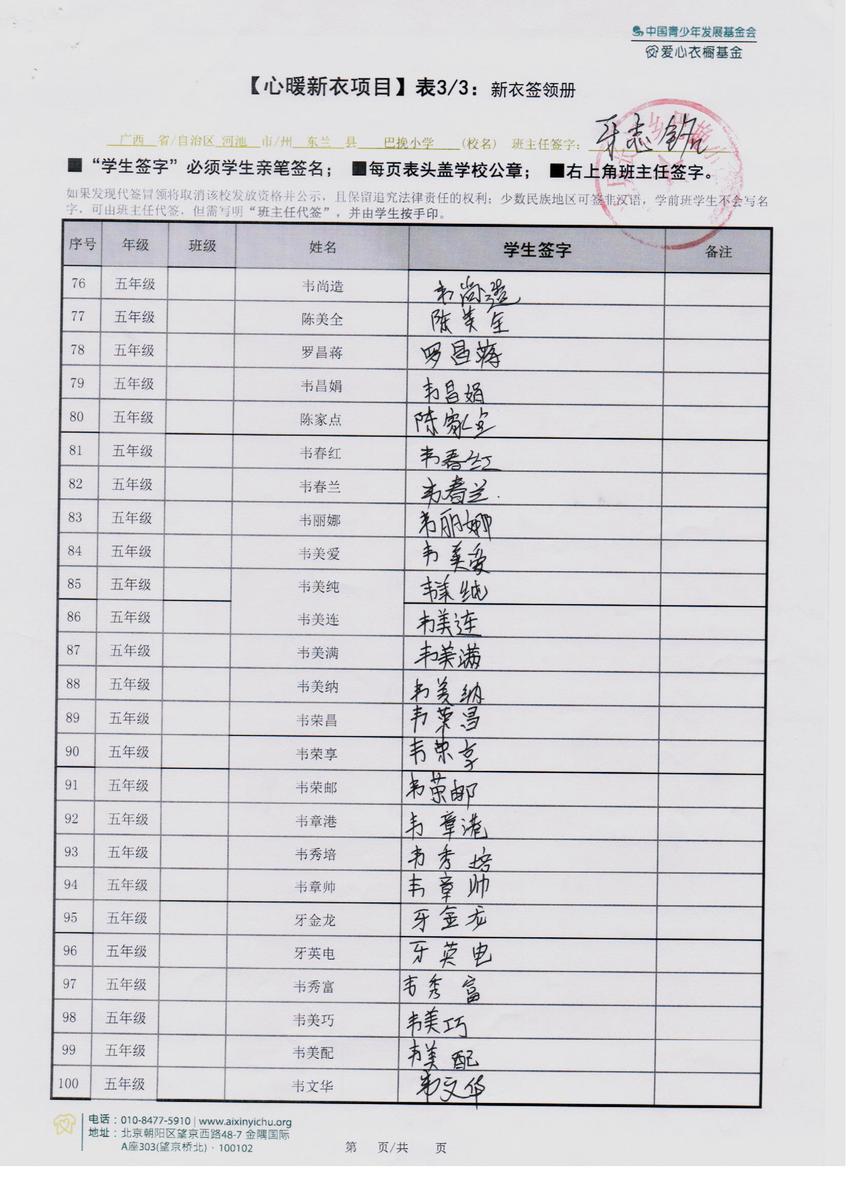 中国青少年发展基金会
爱心衣橱基金
【心暖新衣项目】表3/3：新衣签领册
广西 省/自治区 河池 市/州 东兰 县 巴挽小学 (校名) 班主任签字：牙志
■“学生签字”必须学生亲笔签名； ■每页表头盖学校公章； ■右上角班主任签字。
如果发现代签冒领将取消该校发放资格并公示，且保留追究法律责任的权利；少数民族地区可签非汉语，学前班学生不会写名
字，可由班主任代签，但需写明“班主任代签”，并由学生按手印。
序号 年级 班级 姓名 学生签字 备注
76 五年级 韦尚造 韦尚造
77 五年级 陈美全 陈美全
78 五年级 罗昌蒋 罗昌蒋
79 五年级 韦昌娟 韦昌娟
80 五年级 陈家点 陈家
81 五年级 韦春红 韦春红
82 五年级 韦春兰 韦春兰.
83 五年级 韦丽娜 韦丽娜
84 五年级 韦美爱 韦美爱
85 五年级 韦美纯 韦美纯
86 五年级 韦美连 韦美连
87 五年级 韦美满 韦美满
88 五年级 韦美纳 韦美纳
89 五年级 韦荣昌 韦荣昌
90 五年级 韦荣享 韦荣享
91 五年级 韦荣邮 韦荣邮
92 五年级 韦章港 韦章港
93 五年级 韦秀培 韦秀培
94 五年级 韦章帅 韦章帅
95 五年级 牙金龙 牙金龙
96 五年级 牙英电 牙英电
97 五年级 韦秀富 韦秀富
98 五年级 韦美巧 韦美巧
99 五年级 韦美配 韦美配
100 五年级 韦文华 韦文华
电话：010-8477-5910 | www.aixinyichu.org
地址：北京朝阳区望京西路48-7 金隅国际
A座303(望京桥北)·100102
第 页/共 页